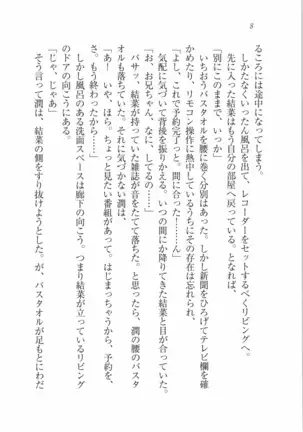 8
るころには途中になってしまう。
しかたなくいったん風呂を出て、レコーダーをセットするべくリビングへ。
先に入った結菜はもう自分の部屋へ戻っている。となれば、
「別にこのままで、いっか」
いちおうバスタオルを腰に巻く分別はあった。しかし新聞をひろげてテレビ欄を確
かめたり、リモコン操作に熱中しているうちにその存在は忘れられ、
「よし、これで予約完了っと。間に合った……ん」
気配に気づいて背後を振りかえる。いつの間にか降りてきた結菜と目が合っていた。
「お、お兄ちゃん、なに、してるの……」
バサッ、結菜が持っていた雑誌が音をたてて落ちた。と思ったら、潤の腰のバスタ
オルも落ちていた。それに気づかない潤は、
「あー　いや、ほら。ちょっと見たい番組があって。はじまっちゃうから、予約を、
さ。もう終わったから……」
しかし風呂のある洗面スペースは廊下の向こう。つまり結菜が立っているリビング
のドアの向こうにある。
「じゃ、じゃあ」
そう言って潤は、結菜の側をすり抜けようとした。が、バスタオルが足もとにわだ